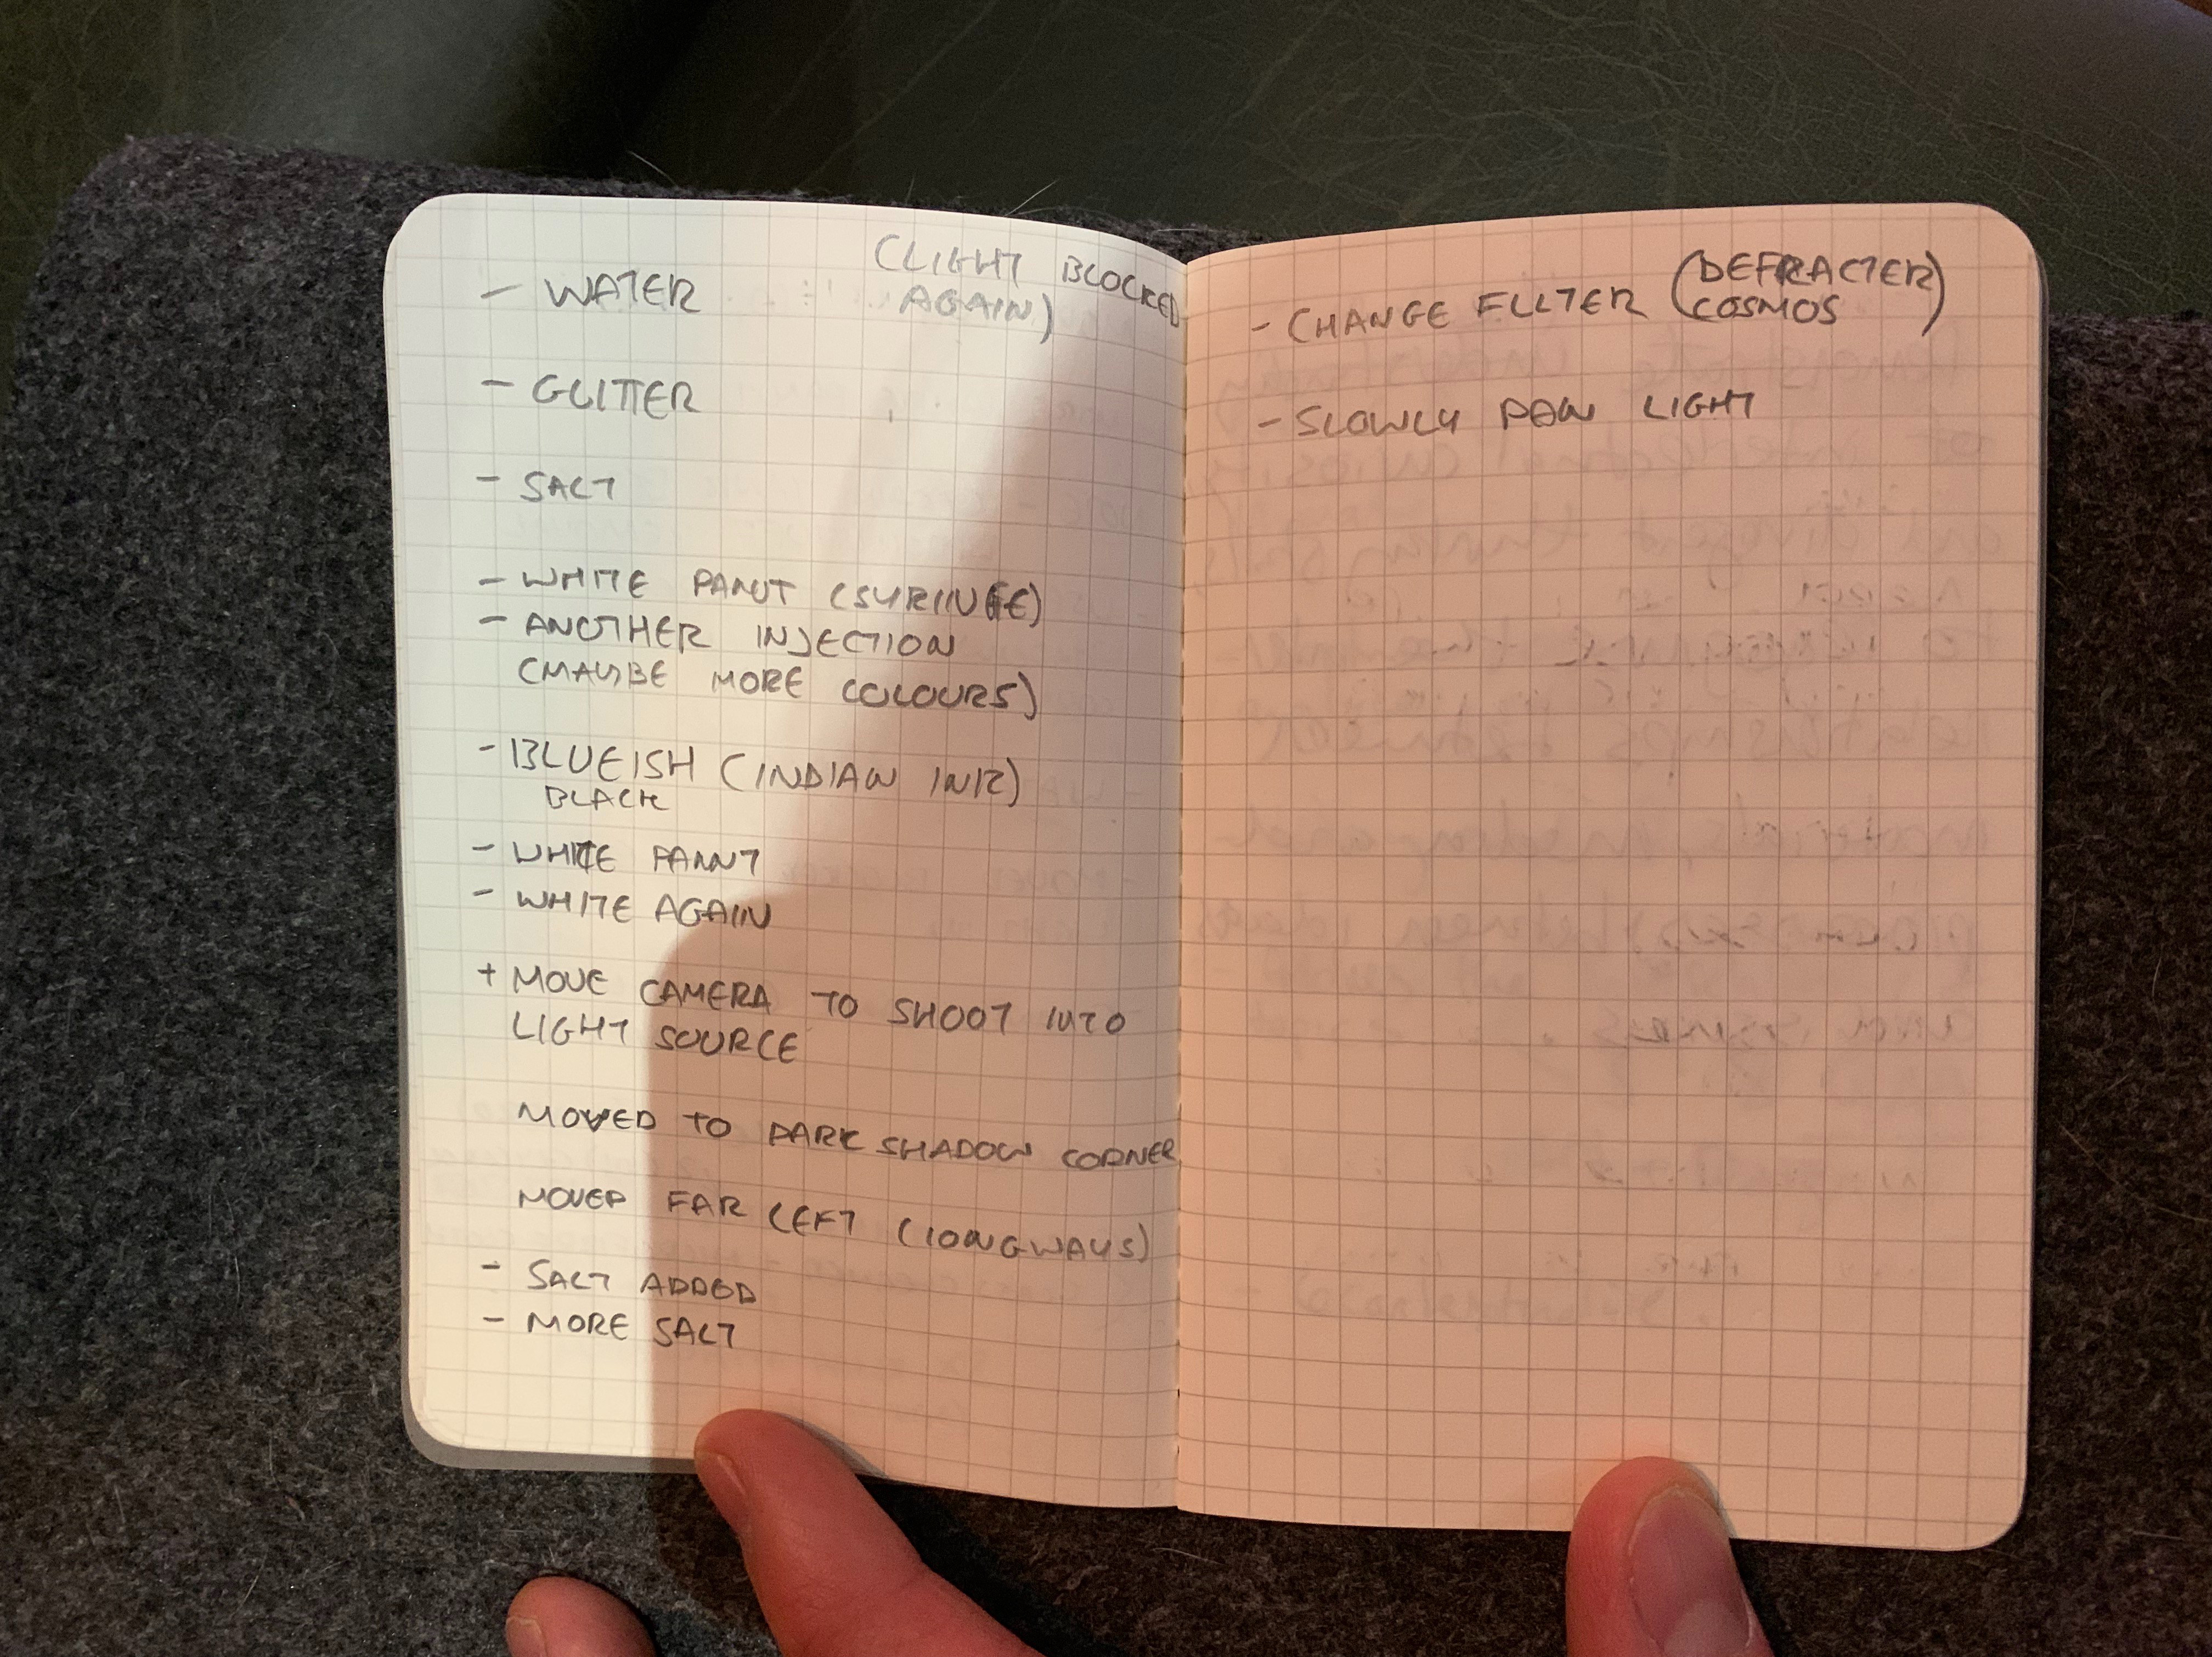 - WATER (LIGHT BLOCKED
AGAIN)
- GLITTER
- SALT
- WHITE PAINT (SYRINGE)
- ANOTHER INJECTION
(MAYBE MORE COLOURS)
- BLUEISH (INDIAN INK)
BLACK
- WHITE PAINT
- WHITE AGAIN
+ MOVE CAMERA TO SHOOT INTO
LIGHT SOURCE
MOVED TO DARK SHADOW CORNER
MOVED FAR LEFT (LONGWAYS)
- SALT ADDED
- MORE SALT
- CHANGE FILTER (DEFRACTER
COSMOS)
- SLOWLY PAN LIGHT